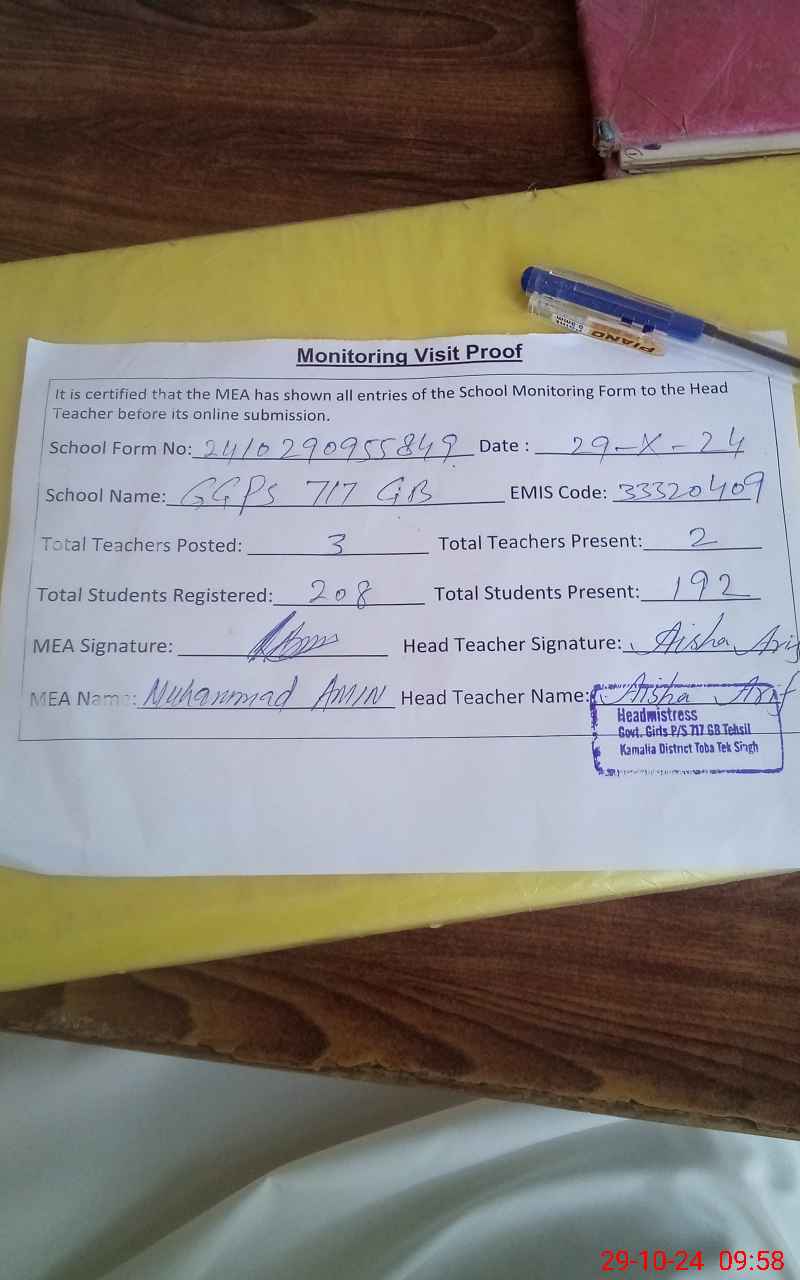 Monitoring Visit Proof
It is certified that the MEA has shown all entries of the School Monitoring Form to the Head
Teacher before its online submission.
School Form No: 2410290955849 Date : 29-X-24
School Name: GGPS 717 GB EMIS Code: 33320409
Total Teachers Posted: 3 Total Teachers Present: 2
Total Students Registered: 208 Total Students Present: 192
MEA Signature: Head Teacher Signature: Aisha Arif
MEA Name: Muhammad AMIN Head Teacher Name: Aisha Arif
Headmistress
Govt. Girls P/S 717 GB Tehsil
Kamalia District Toba Tek Singh
PIANO
29-10-24 09:58